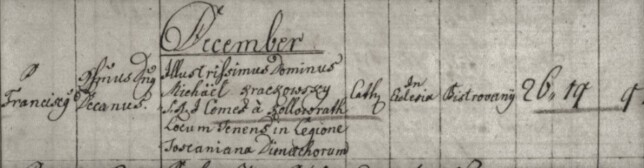 December
P Franciscq
Dnus Decanus.
Illustrissimus Dominus
Michaël Krackowszky
S.R.I Comes à Kollowrath
Locum Tenens in Legione
Toscaniana Dimachorum
Cath.
In Eclesia
Bistrovany
26. 19
9